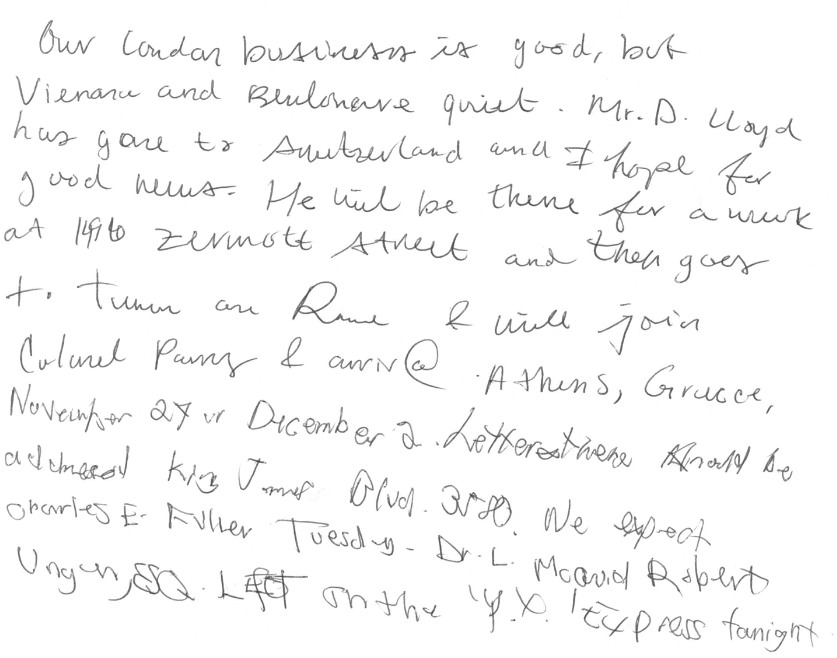 Our London business is good, but
Vienana and Benlonerve quiet. Mr. D. Lloyd
has gone to Switzerland and I hope for
good news. He will be there for a week
at 1496 Zermott Street and then goes
to Turin an Rome & will join
Colonel Parry & arriv@ Athens, Greece,
November 27 or December 2. Letters there should be
addressed King James Blvd. 3580. We expect
Charles E. Fuller Tuesday. Dr. L. McQuaid Robert
Unger, ESQ. Left on the "Y.X." Express tonight.